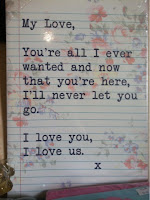 My Love,
You're all I ever
wanted and now
that you're here,
I'll never let you
go.
I love you,
I love us.
x